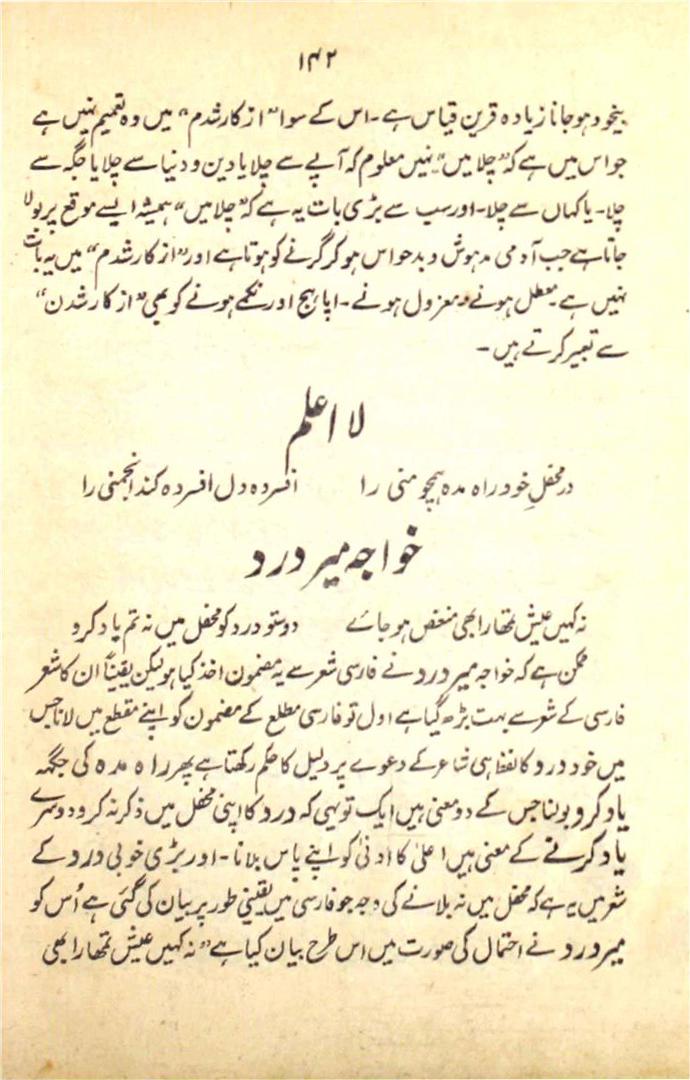 ۱۴۲
بیخود ہوجانا زیادہ قرین قیاس ہے۔ اس کے سوا "از کار شدم" میں وہ تعمیم نہیں ہے
جو اس میں ہے کہ "چلا میں" نہیں معلوم کہ آپے سے چلا یا دین و دنیا سے چلا یا جگہ سے
چلا۔ یا کہاں سے چلا۔ اور سب سے بڑی بات یہ ہے کہ "چلا میں" ہمیشہ ایسے موقع پر بولا
جاتا ہے جب آدمی مدہوش و بدحواس ہوکر گرنے کو ہوتا ہے اور "از کار شدم" میں یہ بات
نہیں ہے۔ معطل ہونے و معزول ہونے۔ اپاہج اور نکمے ہونے کو بھی "از کار شدن"
سے تعبیر کرتے ہیں۔
لا اعلم
در محفلِ خود راہ مدہ ہمچو منی را افسردہ دل افسردہ کند انجمنی را
خواجہ میر درد
نہ کہیں عیش تمھارا بھی منغص ہوجائے دوستو درد کو محفل میں نہ تم یاد کرو
ممکن ہے کہ خواجہ میر درد نے فارسی شعر سے یہ مضمون اخذ کیا ہو لیکن یقیناً ان کا شعر
فارسی کے شعر سے بہت بڑھ گیا ہے اول تو فارسی مطلع کے مضمون کو اپنے مقطع میں لانا جس
میں خود درد کا لفظ ہی شاعر کے دعوے پر دلیل کا حکم رکھتا ہے پھر راہ مدہ کی جگہ
یاد کرو بولنا جس کے دو معنی ہیں ایک تو یہی کہ درد کا اپنی محفل میں ذکر نہ کرو دوسرے
یاد کرنے کے معنی ہیں اعلیٰ کا ادنیٰ کو اپنے پاس بلانا۔ اور بڑی خوبی درد کے
شعر میں یہ ہے کہ محفل میں نہ بلانے کی وجہ جو فارسی میں یقینی طور پر بیان کی گئی ہے اُس کو
میر درد نے احتمال کی صورت میں اس طرح بیان کیا ہے "نہ کہیں عیش تمھارا بھی